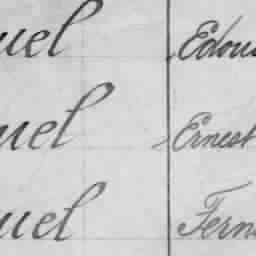 uel Edou
uel Ernest
uel Fern